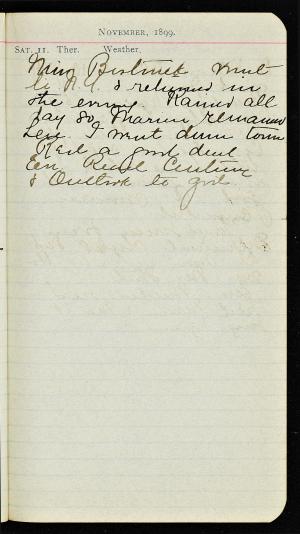 November, 1899.
Sat. 11. Ther. Weather.
Miss went
to N.Y. & returned in
the evening. Rained all
day so Marion remained
here. I went down town
Read a good deal
Em Read Century
& Outlook to